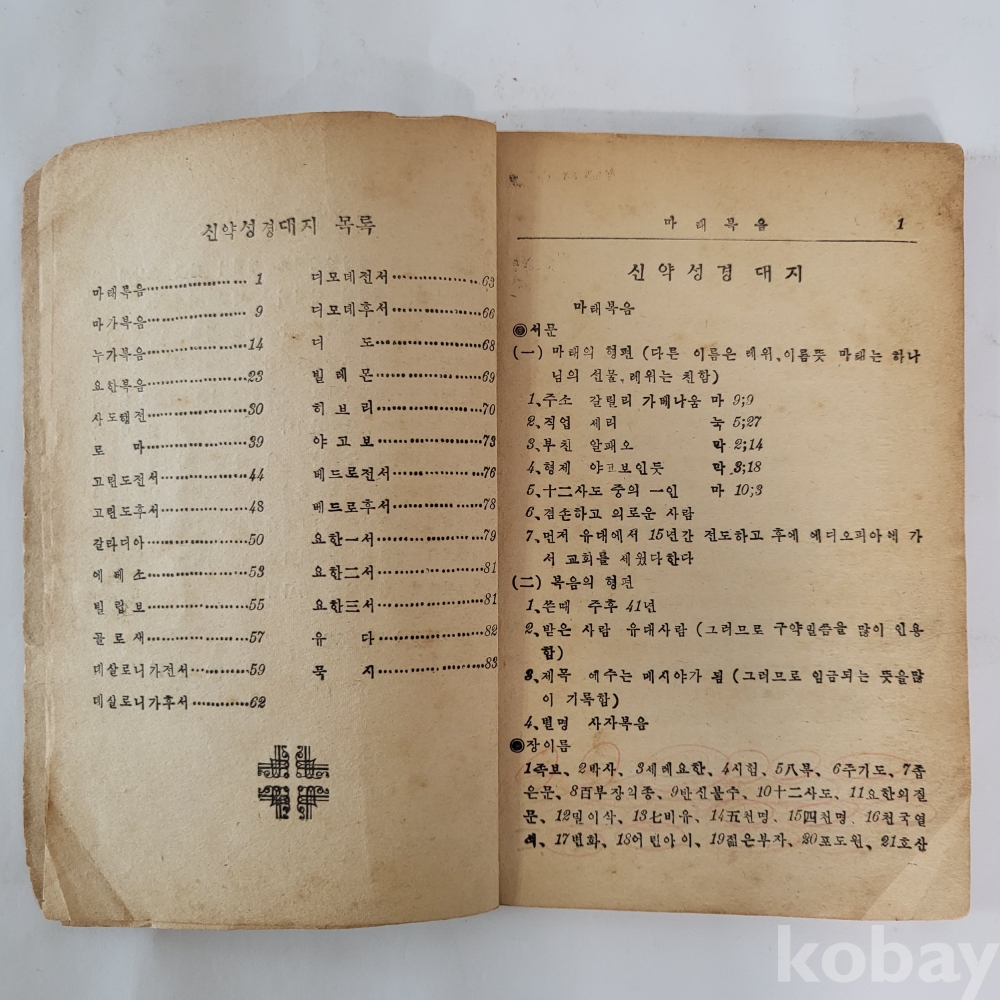 신약성경대지 목록
마태복음 1
마가복음 9
누가복음 14
요한복음 23
사도행전 30
로마 39
고린도전서 44
고린도후서 48
갈라디아 50
에베소 53
빌립보 55
골로새 57
데살로니가전서 59
데살로니가후서 62
디모데전서 63
디모데후서 66
디도 68
빌레몬 69
히브리 70
야고보 73
베드로전서 76
베드로후서 78
요한一서 79
요한二서 81
요한三서 81
유다 82
묵지 83
마태복음 1
신약성경대지
마태복음
◉서문
(一) 마태의 형편 (다른 이름은 레위、이름뜻 마태는 하나
님의 선물、레위는 친합)
1、주소 갈릴리 가베나움 마 9;9
2、직업 세리 눅 5;27
3、부친 알패오 막 2;14
4、형제 야고보인듯 막 3;18
5、十二사도 중의 一인 마 10;3
6、겸손하고 의로운 사람
7、먼저 유대에서 15년간 전도하고 후에 에디오피아에 가
서 교회를 세웠다한다
(二) 복음의 형편
1、쓴때 주후 41년
2、받은 사람 유대사람 (그러므로 구약말씀을 많이 인용
함)
3、제목 예수는 메시야가 됨 (그러므로 임금되는 뜻을많
이 기록함)
4、별명 사자복음
◉장이름
1족보、2박사、3세례요한、4시험、5八복、6주기도、7좁
은문、8百부장의종、9반신불수、10十二사도、11요한의질
문、12밀이삭、13七비유、14五천명、15四천명、16천국열
쇠、17변화、18어린아이、19젊은부자、20포도원、21호산
kobay